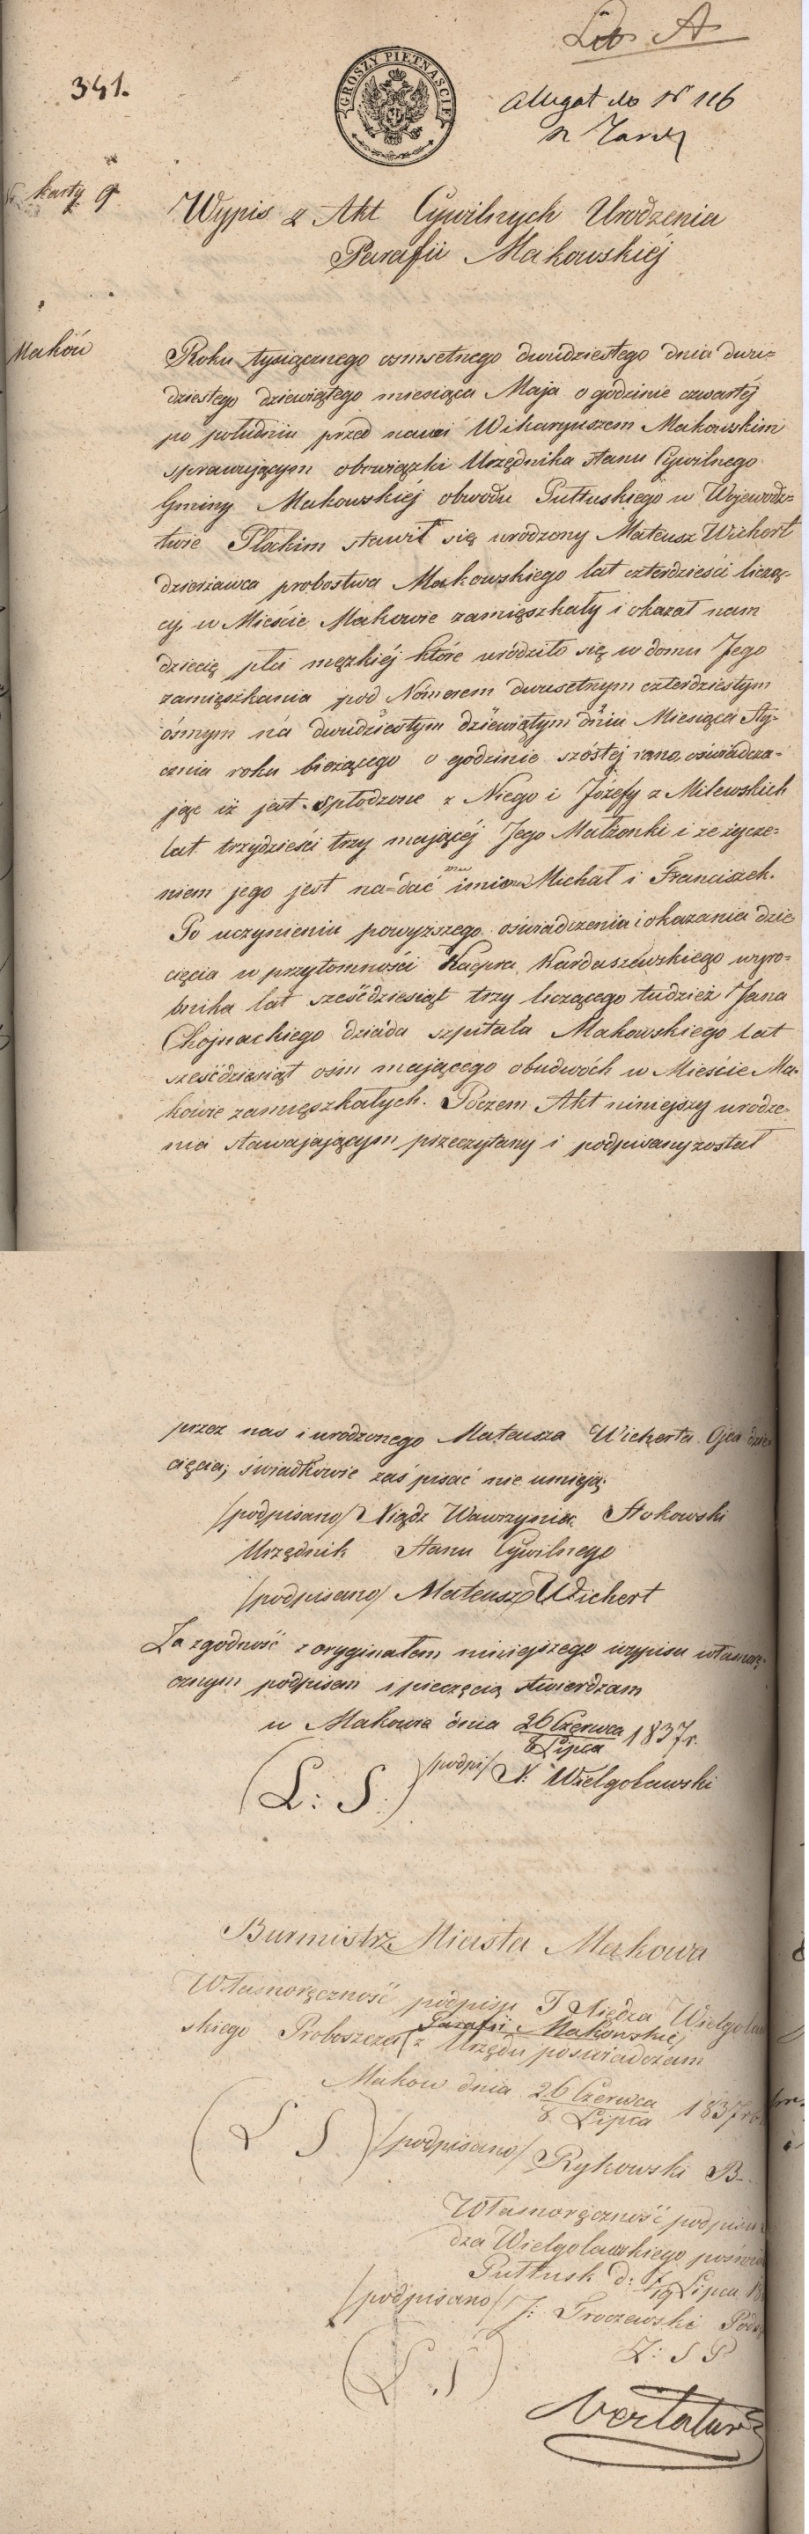 Lit A
341.
GROSZY PIĘTNAŚCIE
Allegat do N 116
karty 9
Wypis z Akt Cywilnych Urodzenia
Parafii Makowskiéj
Maków
Roku tysiącznego osmsetnego dwudziestego dnia dwu=
dziestego dziewiątego miesiąca Maja o godzinie czwartéj
po południu przed nami Wikaryuszem Makowskim
sprawującym obowiązki Urzędnika stanu Cywilnego
Gminy Makowskiéj obwodu Pułtuskiego w Wojewódz=
twie Płockim stawił się urodzony Mateusz Wichert
dzierżawca probostwa Makowskiego lat czterdzieści liczą=
cy, w Mieście Makowie zamięszkały i okazał nam
dziecię płci męzkiéj które urodziło się w domu Jego
zamięszkania pod Nomerem dwusetnym czterdziestym
ósmym na dwudziestym dziewiątym dniu Miesiąca Sty=
cznia roku bieżącego o godzinie szóstéj rano, oświadcza=
jąc iż jest spłodzone z Niego i Józefy z Milewskich
lat trzydzieści trzy mającéj Jego Małżonki i że życze=
niem jego jest na=dać mu imiona Michał i Franciszek.
Po uczynieniu powyższego oświadczenia i okazania dzie
cięcia w przytomności Kacpra Kardaszewskiego wyro=
bnika lat sześćdziesiąt trzy liczącego tudzież Jana
Chojnackiego dziada szpitala Makowskiego lat
sześćdziesiąt ośm mającego obudwóch w Mieście Ma=
kowie zamięszkałych. Poczem Akt niniejszy urodze=
nia stawajającym przeczytany i podpisany został
przez nas i urodzonego Mateusza Wicherta Ojca dzie
cięcia; świadkowie zaś pisać nie umieją.
/podpisano/ Xiądz Wawrzyniec
Urzędnik Stanu Cywilnego
/podpisano/ Mateusz Wichert
Za zgodność z oryginałem niniejszego wypisu własnorę=
cznym podpisem i pieczęcią stwierdzam
w Makowie dnia 26 Czerwca / 8 Lipca 1837 r.
(L: S.) /podpi/ X: Wielgolawski
Burmistrz Miasta Makowa
Własnoręczność podpisu J Xiędza Wielgolaw
Parafii Makowskiéj
skiego Proboszcza z Urzędu poświadczam
Makow dnia 26 Czerwca / 8 Lipca 1837 r
(L S) /podpisano/ Rykowski B.
Własnoręczność podpisu
dza Wielgolawskiego poświa
Pułtusk d: 7/19 Lipca 18
/podpisano/ J: Troczewski Pod
Z: S P
(L. S)
Vertatur